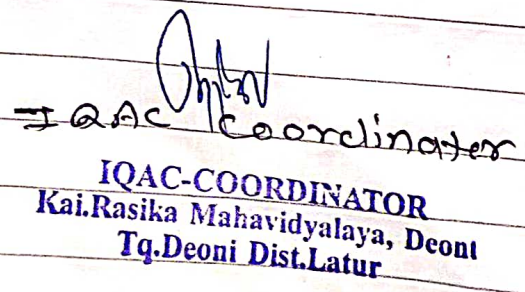 IQAC Coordinater
IQAC-COORDINATOR
Kai.Rasika Mahavidyalaya, Deoni
Tq.Deoni Dist.Latur